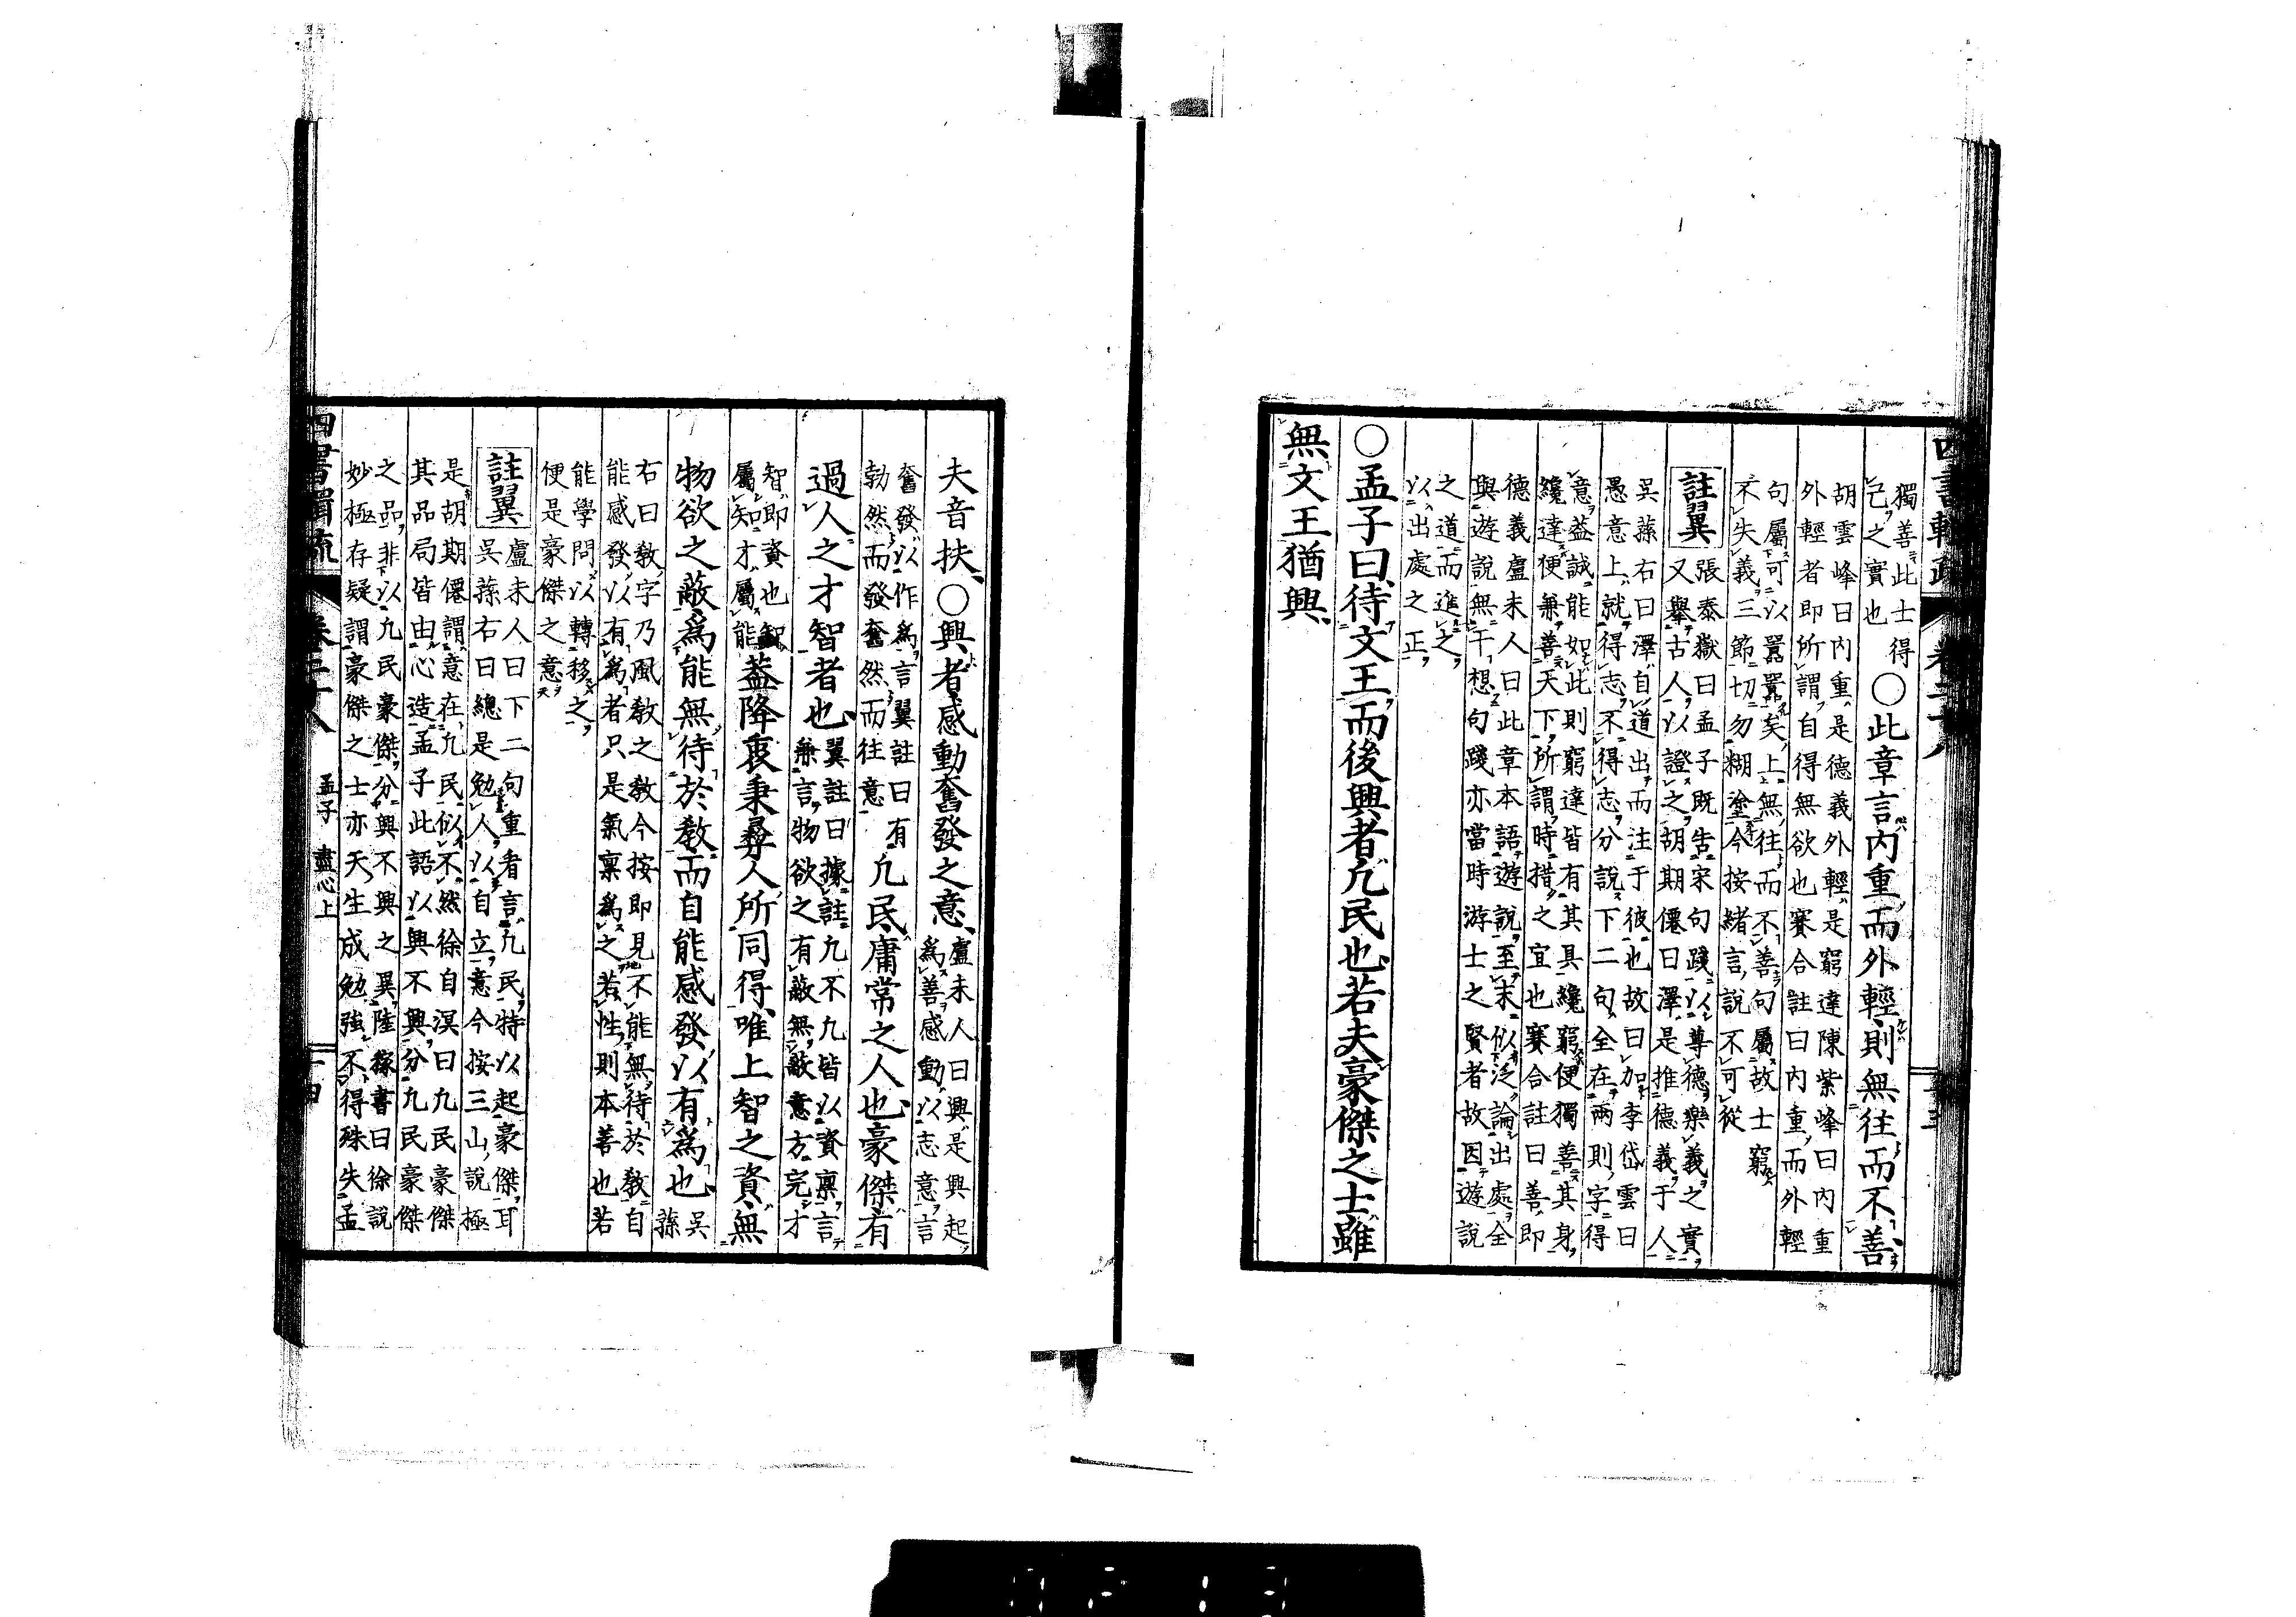 四書輯疏 卷二十八
獨善此士得
己之實也
○此章言內重而外輕則無往而不善
胡雲峰曰內重是德義外輕是窮達陳紫峰曰內重
外輕者即所謂自得無欲也賽合註曰內重而外輕
句屬可以囂囂矣上無往而不善句屬故士窮
不失義三節切勿糊塗今按緒言說不可從
註翼
張泰嶽曰孟子既告宋句踐以尊德樂義之實
又舉古人以證之胡期僊曰澤是推德義于人
吳蓀右曰澤自道出而注于彼也故曰加李岱雲曰
愚意上就得志不得志分說下二句全在兩則字得
意葢誠能如此則窮達皆有其具纔窮便獨善其身
纔達便兼善天下所謂時措之宜也賽合註曰善即
德義盧未人曰此章本語遊說至末似泛論出處全
與遊說無干想句踐亦當時游士之賢者故因遊說
之道而進之
以出處之正
○孟子曰待文王而後興者凡民也若夫豪傑之士雖
無文王猶興
夫音扶○興者感動奮發之意
盧未人曰興是興起
為善感動以志意言
奮發以作為言翼註曰有
勃然而發奮然而往意
凡民庸常之人也豪傑有
過人之才智者也
翼註曰據註凡不凡皆以資稟言
兼言物欲之有蔽無蔽意方完才
智即資也智
屬知才屬能
葢降衷秉彝人所同得唯上智之資無
物欲之蔽為能無待於教而自能感發以有為也
吳蓀
右曰教字乃風教之教今按即見不能無待於教自
能感發以有為者只是氣稟為之若性則本善也若
能學問以轉移之
便是豪傑之意
註翼
盧未人曰下二句重看言凡民特以起豪傑耳
吳蓀右曰總是勉人以自立意今按三山說極
是胡期僊謂意在凡民似不然徐自溟曰凡民豪傑
其品局皆由心造孟子此語以興不興分凡民豪傑
之品非以凡民豪傑分興不興之異陸稼書曰徐說
妙極存疑謂豪傑之士亦天生成勉強不得殊失孟
四書輯疏 卷二十八 孟子 盡心上 十四